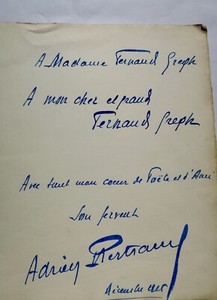 A Madame Fernand Gregh
A mon cher et grand
Fernand Gregh
Avec tout mon coeur de Poète et d'Ami
Son fervent
Adrien Bertrand
Décembre